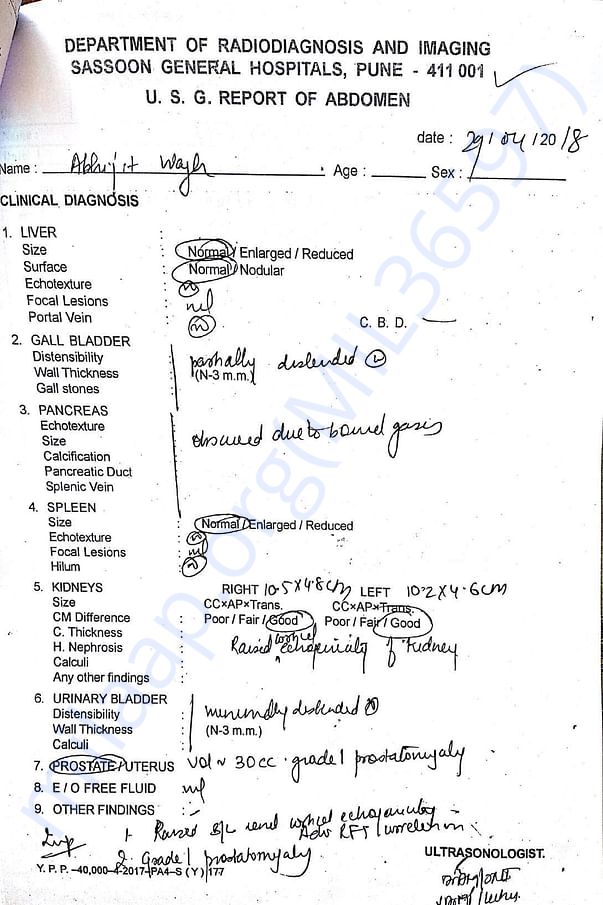 DEPARTMENT OF RADIODIAGNOSIS AND IMAGING
SASSOON GENERAL HOSPITALS, PUNE - 411 001
U. S. G. REPORT OF ABDOMEN
date : 29/04/2018
Name : Abhijit Wagh Age : Sex :
CLINICAL DIAGNOSIS
1. LIVER :
Size : Normal / Enlarged / Reduced
Surface : Normal / Nodular
Echotexture : N
Focal Lesions : nil
Portal Vein : N C. B. D. —
2. GALL BLADDER
Distensibility partially distended N
Wall Thickness (N-3 m.m.)
Gall stones
3. PANCREAS
Echotexture obscured due to bowel gases
Size
Calcification
Pancreatic Duct
Splenic Vein
4. SPLEEN
Size : Normal / Enlarged / Reduced
Echotexture : N
Focal Lesions : nil
Hilum : N
5. KIDNEYS RIGHT 10.5X4.8CM LEFT 10.2X4.6CM
Size CC×AP×Trans. CC×AP×Trans.
CM Difference : Poor / Fair / Good Poor / Fair / Good
C. Thickness :
H. Nephrosis : Raised cortical echogenicity of kidney
Calculi :
Any other findings :
6. URINARY BLADDER
Distensibility : minimally distended N
Wall Thickness : (N-3 m.m.)
Calculi :
7. PROSTATE / UTERUS vol ~ 30cc . grade 1 prostatomegaly
8. E / O FREE FLUID nil
9. OTHER FINDINGS : -
Imp 1. Raised B/L renal cortical echogenicity -
Adv RFT / correlation
2. Grade 1 prostatomegaly
ULTRASONOLOGIST.
Y. P. P. –40,000–4-2017–PA4–S ( Y ) 177
milaap.org(MIL36597)